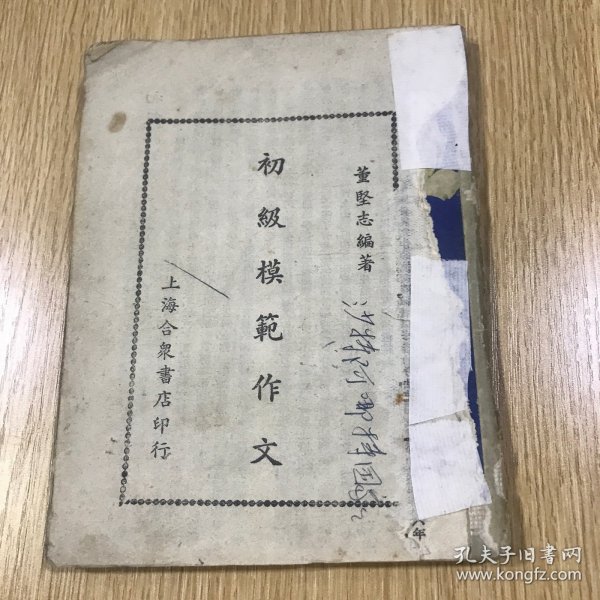 董堅志編著
初級模範作文
上海合衆書店印行
年
孔夫子旧书网
www.kongfz.com